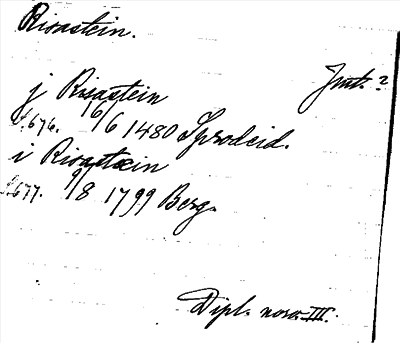 Risastein.
Jmt. ?
j Risastein
S. 676. 16/6 1480 Sprodeid.
i Risastæin
S. 677. 9/8 1799 Berg.
Dipl. norv. III.